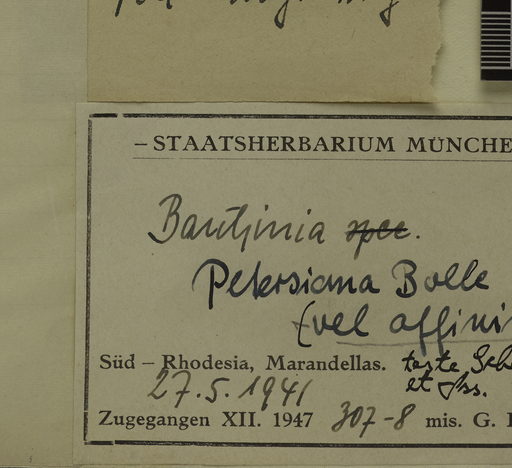 – STAATSHERBARIUM MÜNCHE
Bauhinia spec.
Petersiana Bolle
(vel affini
Süd – Rhodesia, Marandellas. teste
27.5.1941 et
Zugegangen XII. 1947 307-8 mis. G.